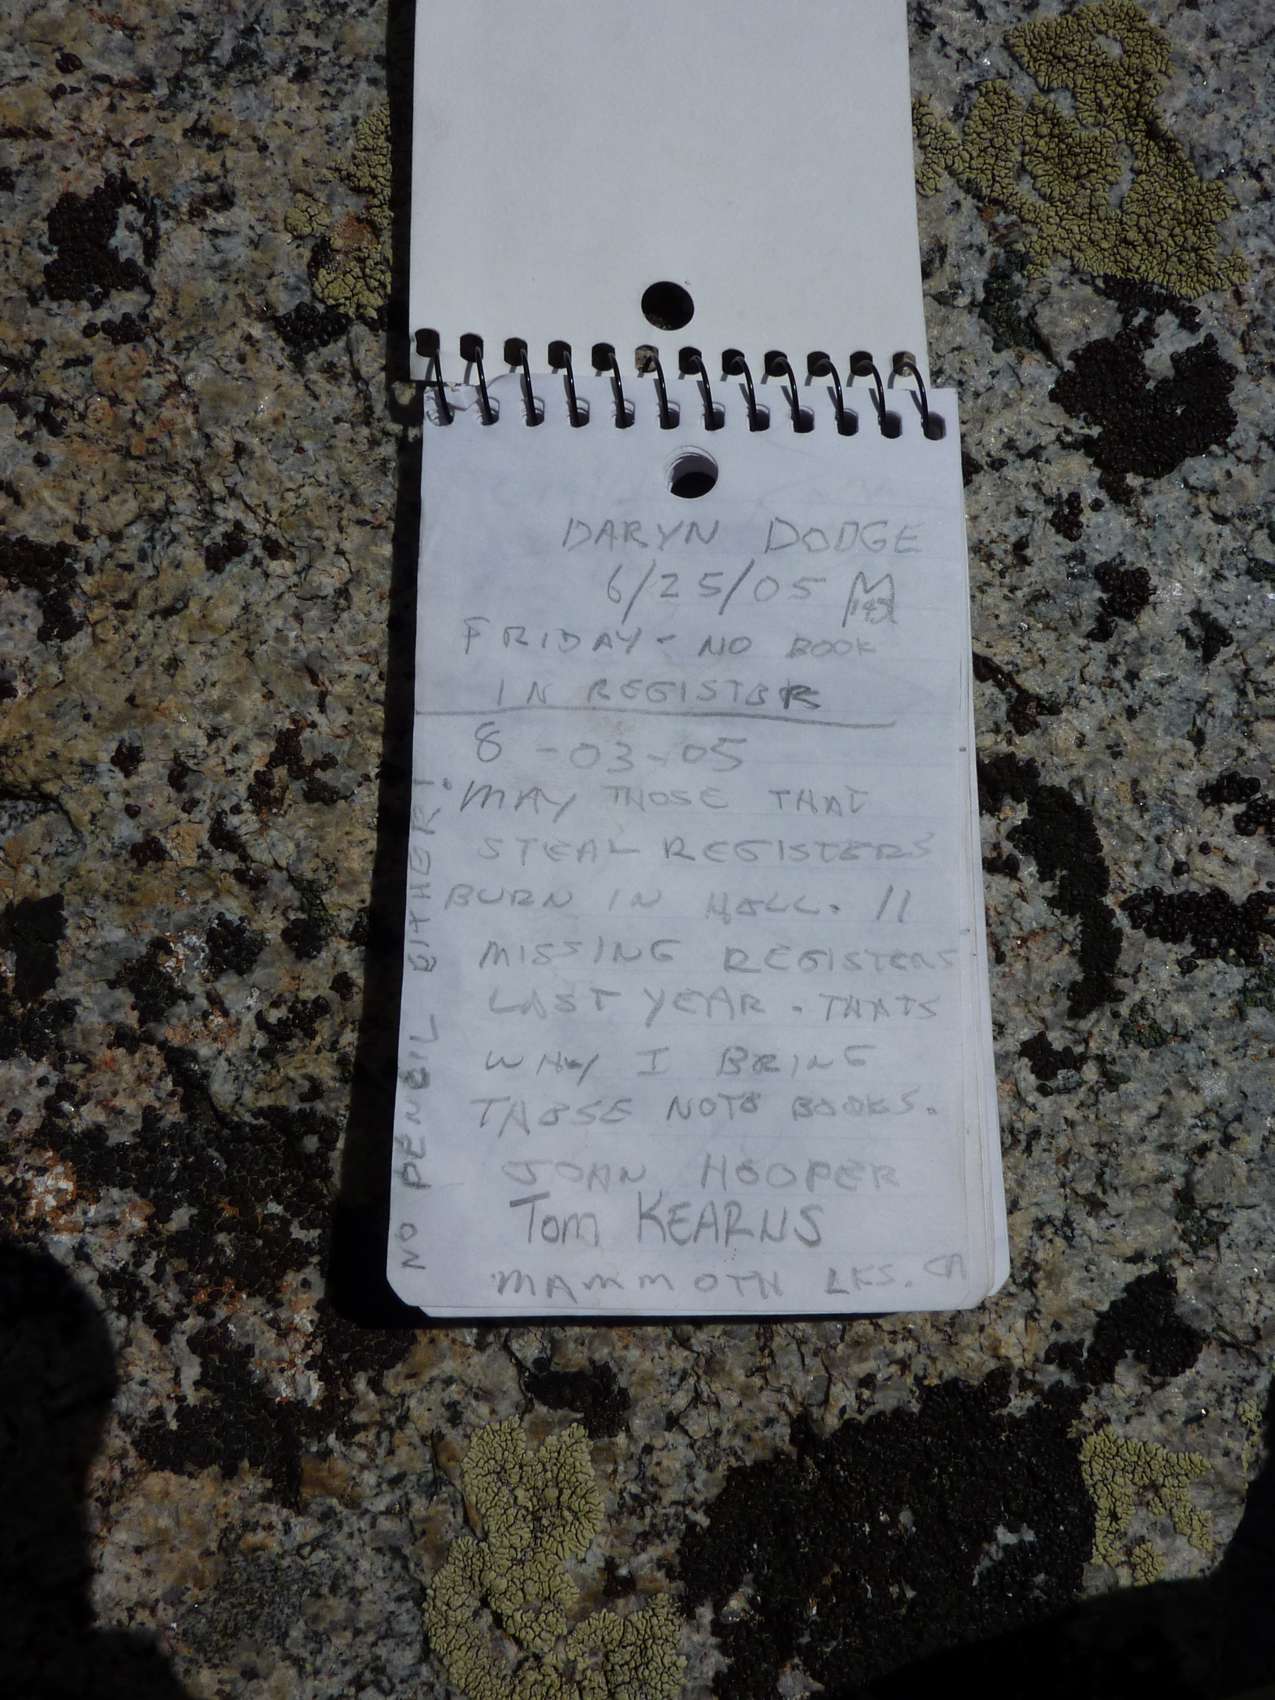 DARYN DODGE
6/25/05
FRIDAY - NO BOOK
IN REGISTER
8-03-05
MAY THOSE THAT
STEAL REGISTERS
BURN IN HELL. 11
MISSING REGISTERS
LAST YEAR. THATS
WHY I BRING
THESE NOTE BOOKS.
JOHN HOOPER
TOM KEARNS
MAMMOTH LKS. CA
NO PENCIL EITHER!